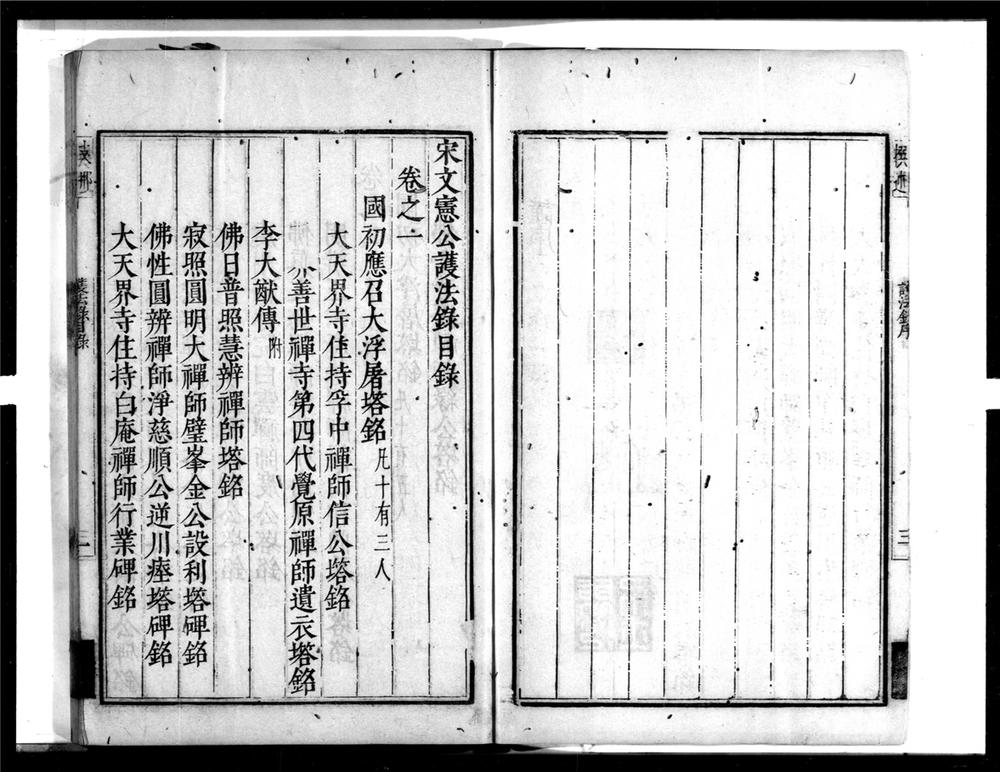 宋文憲公護法錄目錄
卷之一
國初應召大浮屠塔銘 凡十有三人
大天界寺住持孚中禪師信公塔銘
善世禪寺第四代覺原禪師遺衣塔銘
李大猷傳 附
佛日普照慧辨禪師塔銘
寂照圓明大禪師璧峯金公設利塔碑銘
佛性圓辨禪師淨慈順公逆川瘞塔碑銘
大天界寺住持白庵禪師行業碑銘
護法錄目錄
一
護法錄序
三